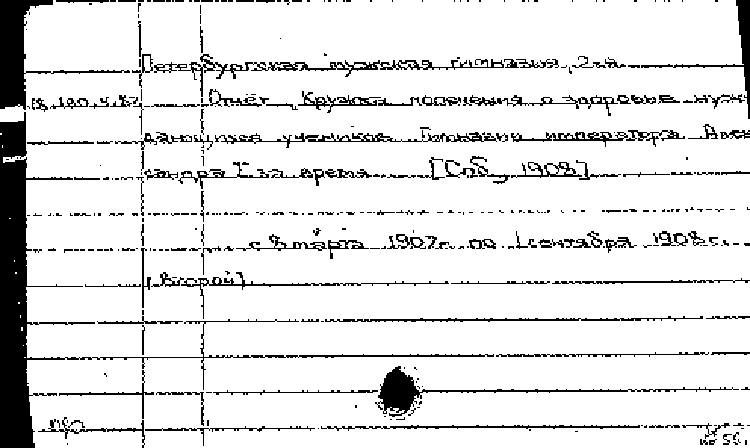 Петербургская мужская гимназия, 2-ая
18.180.4.87 Отчёт Кружка попечения о здоровье нуж-
дающихся учеников Гимназии императора Алек-
сандра I за время ..... [Спб., 1908]
..... с 8 марта 1907г. по 1 сентября 1908 г.
[Второй]